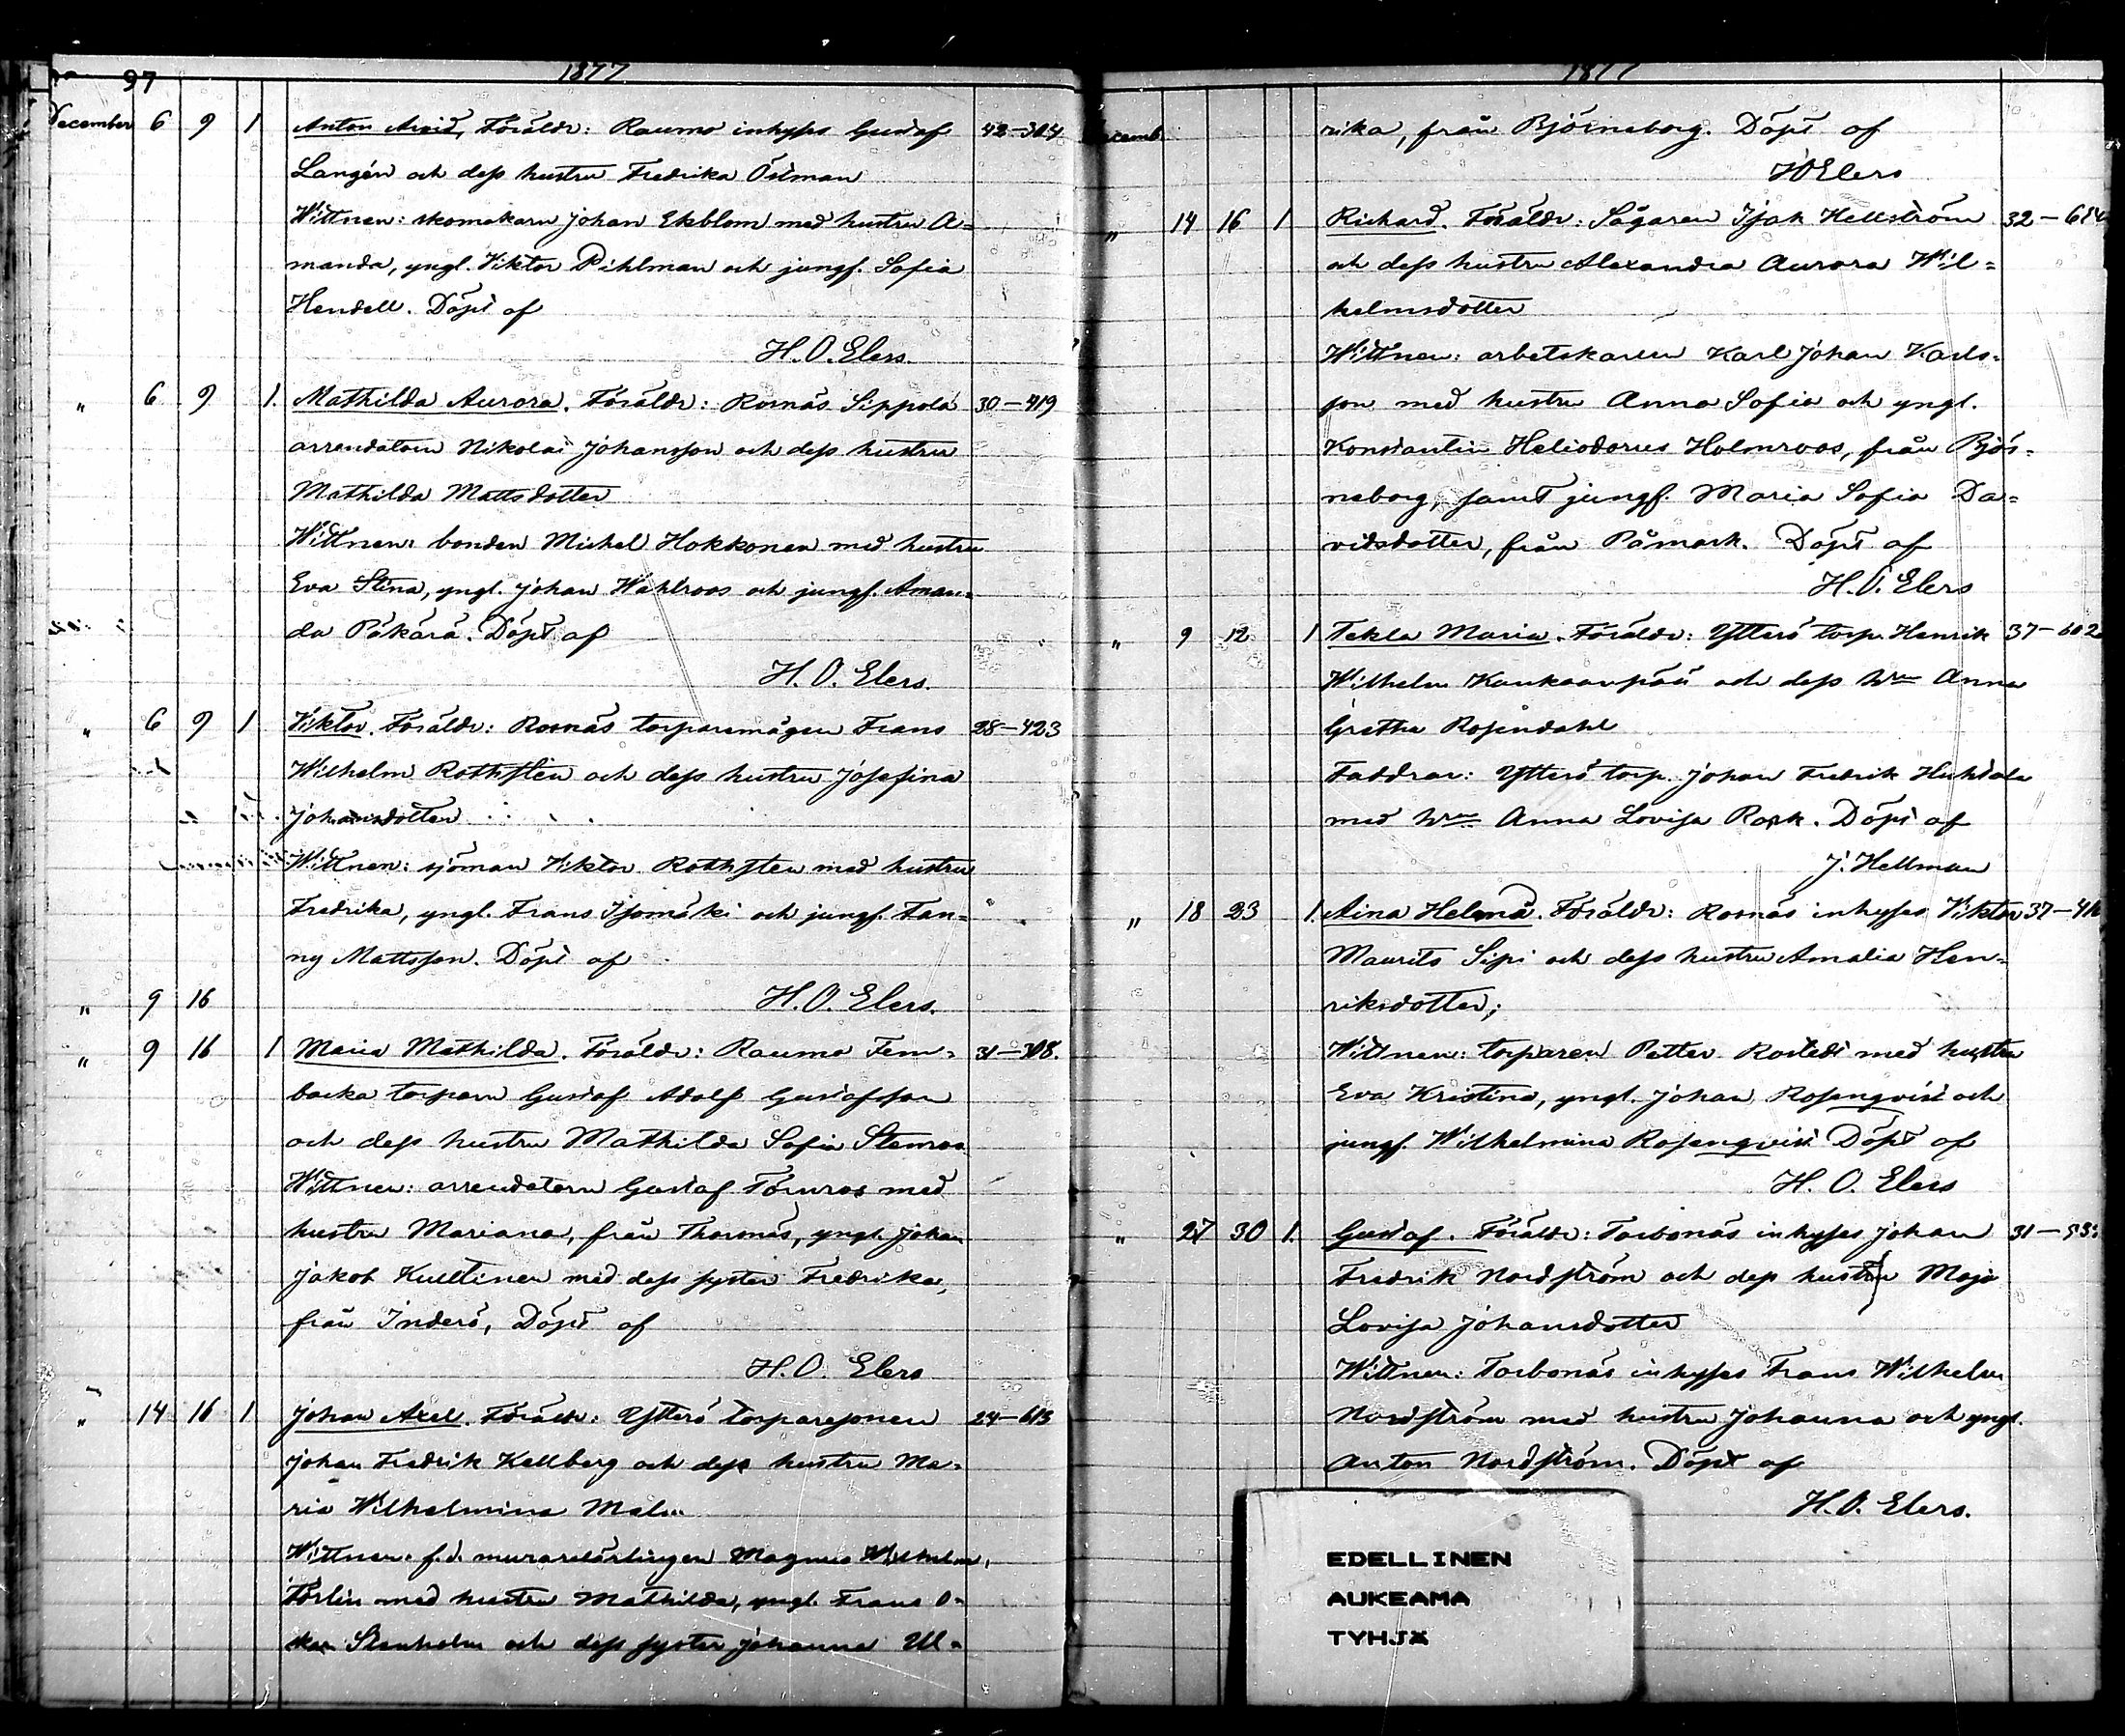 97 1877
December 6 9 1 Anton Arvid, Föräldr: Raumo inhyses Gustaf 42—304
Langén och dess hustru Fredrika Östman
Wittnen: skomakarn Johan Ekblom med hustru A=
manda, yngl. Viktor Pihlman och jungf. Sofia
Hendell. Döpt af
H. O. Elers.
" 6 9 1. Mathilda Aurora. Föräldr: Rosnäs Sippola 30—419
arrendatorn Nikolai Johansson och dess hustru
Mathilda Mattsdotter
Wittnen: bonden Michel Hokkonen med hustru
Eva Stina, yngl. Johan Wahlroos och jungf. Aman=
da Päkärä. Döpt af
H. O. Elers.
" 6 9 1 Viktor. Föräldr: Rosnäs torparemågen Frans 28—423
Wilhelm Rothsten och dess hustru Josefina
Johansdotter
Wittnen: sjöman Viktor Rothsten med hustru
Fredrika, yngl. Frans Isomäki och jungf. Fan=
ny Mattsson. Döpt af
" 9 16 H. O. Elers.
" 9 16 1 Maria Mathilda. Föräldr: Raumo Fem= 31—308.
backa torparn Gustaf Adolf Gustafsson
och dess hustru Mathilda Sofia Stenroos
Wittnen: arrendatorn Gustaf Törnroos med
hustru Mariana, från Thorsnäs, yngl. Johan
Jakob Kulltinen med dess syster Fredrika,
från Inderö, Döpt af
H. O. Elers
" 14 16 1 Johan Axel. Föräldr: Ytterö torparesonen 24—613
Johan Fredrik Kellberg och dess hustru Ma=
ria Wilhelmina Malm
Wittnen: f.d. murarelärlingen Magnus Wilhelm
Törlin med hustru Mathilda, yngl. Frans O=
skar Stenholm och dess syster Johanna Ul=
1877
Decemb. rika, från Björneborg. Döpt af
H O Elers
" 14 16 1 Richard. Föräldr: Sågaren Isak Hellström 32—614
och dess hustru Alexandra Aurora Wil=
helmsdotter
Wittnen: arbetskarlen Karl Johan Karls=
son med hustru Anna Sofia och yngl.
Konstantin Heliodorus Holmroos, från Björ=
neborg, samt jungf. Maria Sofia Da=
vidsdotter, från Påmark. Döpt af
H. O. Elers
" 9 12 1 Tekla Maria. Föräldr: Ytterö torp. Henrik 37—602
Wilhelm Kankaanpää och dess h:u Anna
Gretha Rosendahl
Faddrar: Ytterö torp. Johan Fredrik Huhtala
med h:u Anna Lovisa Rask. Döpt af
J. Hellman
" 18 23 1. Aina Helena. Föräldr: Rosnäs inhyses Viktor 37—
Maurits Sipi och dess hustru Amalia Hen=
riksdotter;
Wittnen: torparen Petter Rostedt med hustru
Eva Kristina, yngl. Johan Rosenqvist och
jungf. Wilhelmina Rosenqvist Döpt af
H. O. Elers
" 27 30 1. Gustaf. Föräldr: Torbonäs inhyses Johan 31—
Fredrik Nordström och dess hustru Maja
Lovisa Johansdotter
Wittnen: Torbonäs inhyses Frans Wilhelm
Nordström med hustru Johanna och yngl.
Anton Nordström. Döpt af
H. O. Elers.
EDELLINEN
AUKEAMA
TYHJÄ